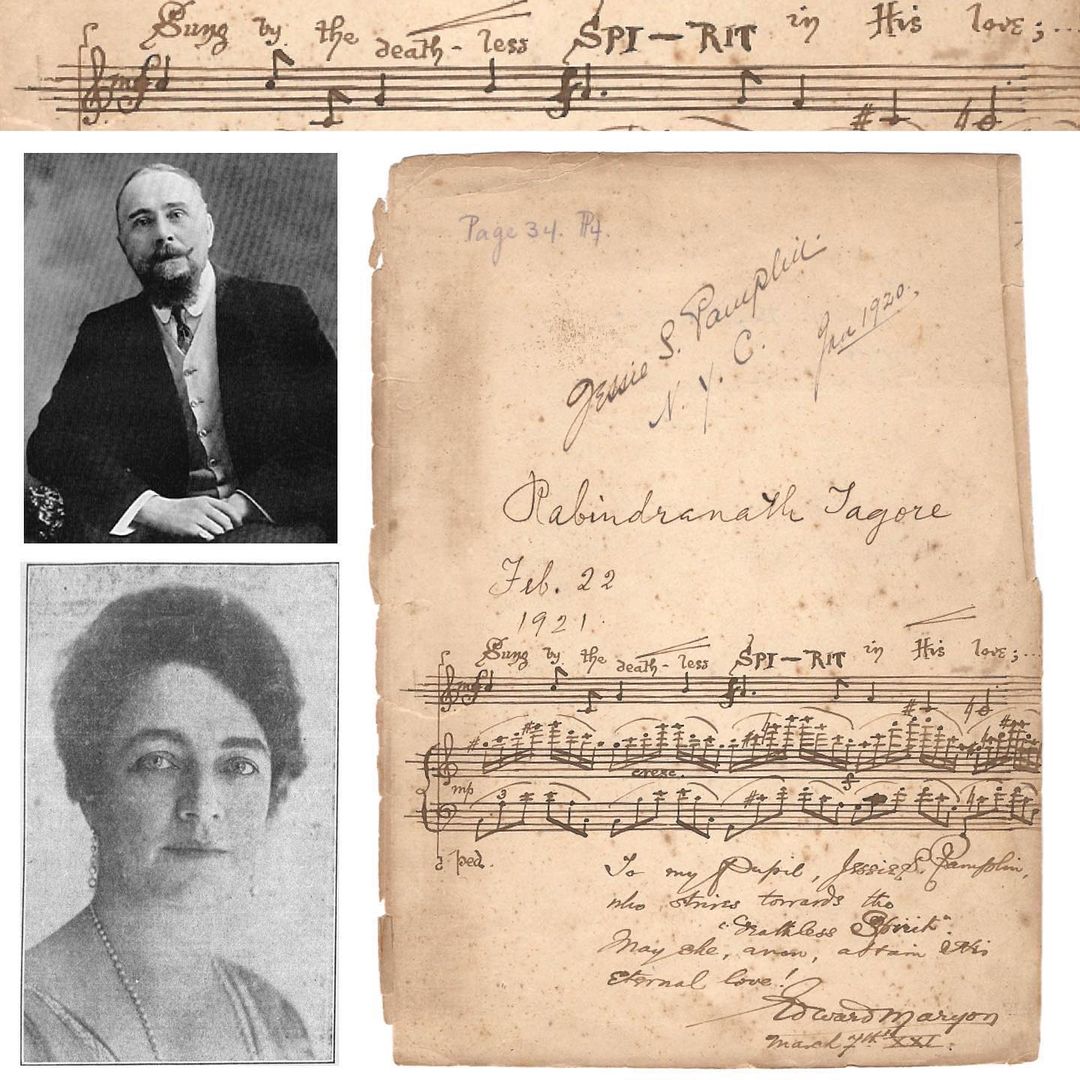 Sung by the death - less SPI - RIT in His love ; ...
mf f
Page 34.
Jessie S. Pamplin
N. Y. C.
Jan 1920.
Rabindranath Tagore
Feb. 22
1921.
Sung by the death - less SPI - RIT in His love ; ...
mf f
cresc.
mp f
3
Ped.
To my Pupil, Jessie S. Pamplin,
who strives towards the
"Deathless Spirit".
May she, anon, attain His
eternal love!
Edward Maryon
March 7th XXI.